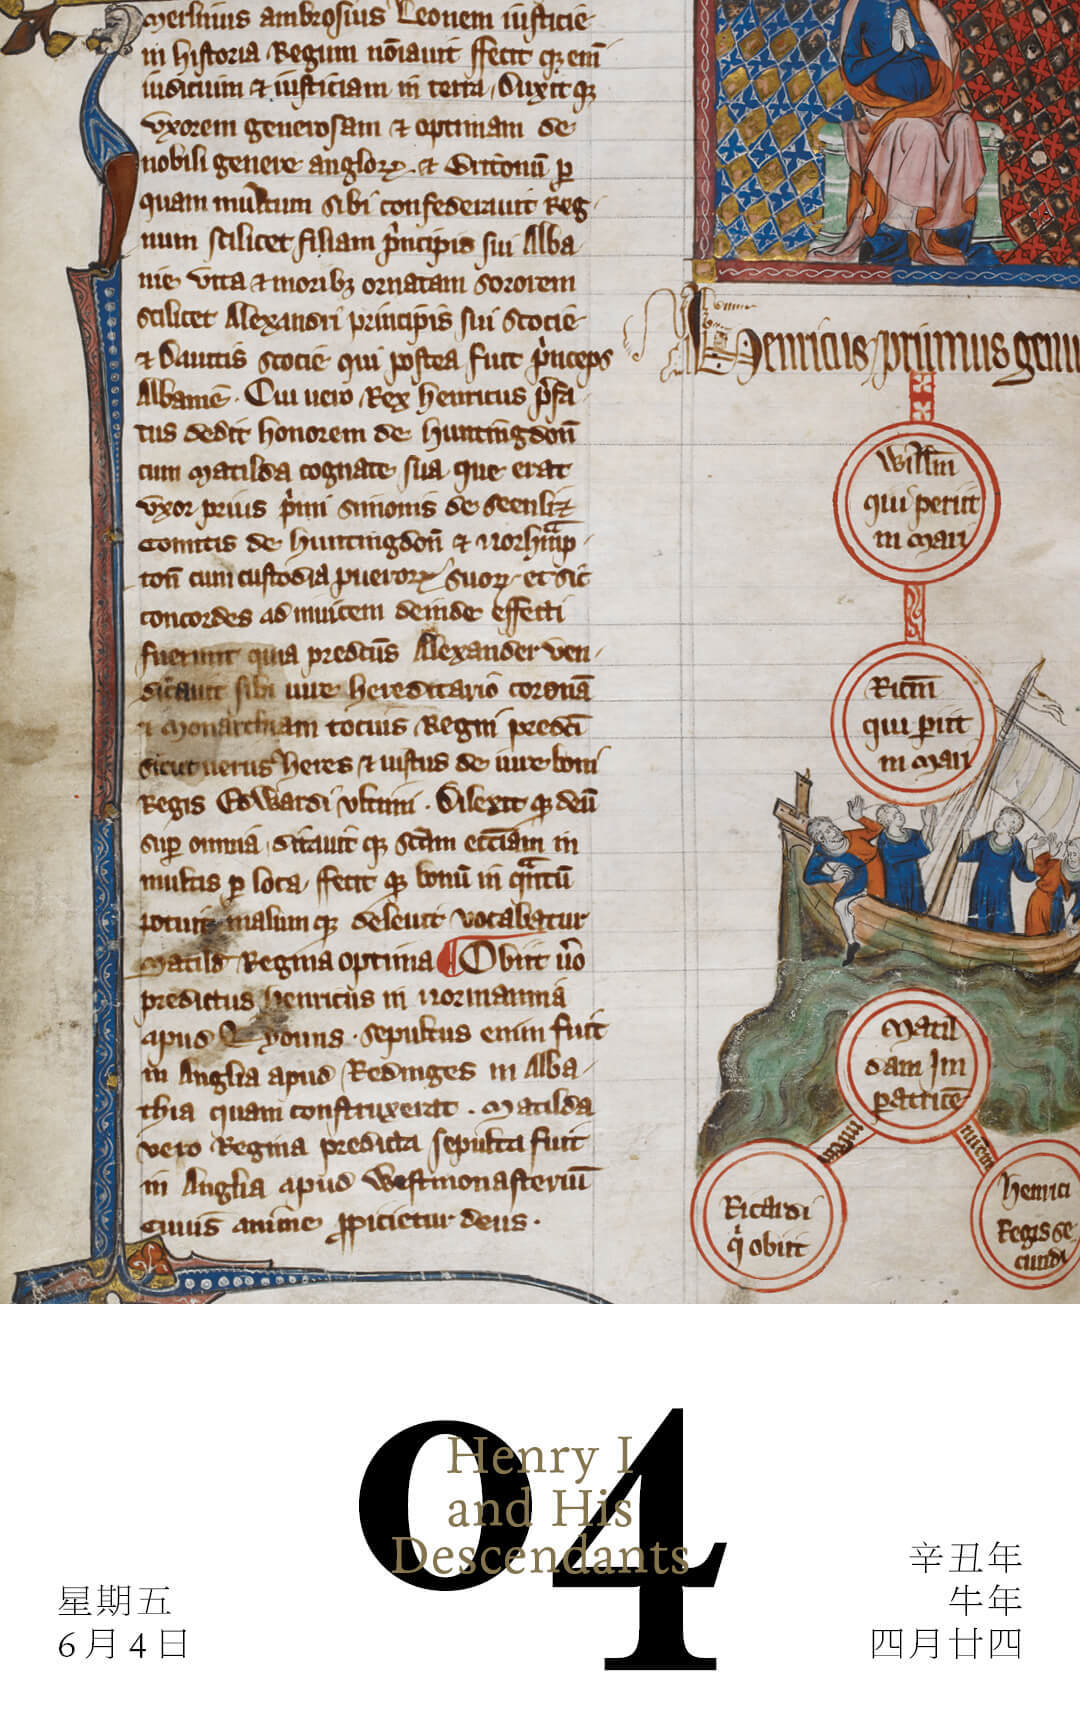 Merlinus ambrosius Leonem iusticie
in historia Regum nōiauit ffecit qꝫ eni
iudicium & iusticiam in terra, Duxit qꝫ
vxorem generosam & optimam de
nobili genere anglorꝝ. & Britonū ꝑ
quam multum sibi confederauit Reg
num scilicet filiam pͥncipis sui Alba
nie vita & moribꝫ ornatam sororem
scilicet Alexandri principis sui Scocie
& Dauitis scocie qui postea fuit pͥnceps
Albanie. Cui vero Rex henricus
tus dedit honorem de huntingdon̄
cum Matilda cognate sua que erat
vxor prius pͥmi simonis de
Comitis de huntingdon̄ &
ton̄ cum custodia puerorꝝ suorꝝ et sic
concordes ad inuicem deinde effecti
fuerunt quia predc̄us Alexander ven
sibi iure hereditario coronā
& Monarchiam tocius Regni predc̄i
sicut verus heres & iustus de iure boni
Regis Edwardi vltimi. Dilexit qꝫ deū
suꝑ omnia, ditauit qꝫ sc̄am ecc̄iam in
multis ꝑ loca, ffecit qꝫ bonū in qᵃntū
potuit malum qꝫ deleuit vocabatur
Matild Regina optima Obiit ūo
predictus henricus in Normannia
apud Lyouns. Sepultus enim fuit
in Anglia apud Redinges in Abba
thia quam construxerat. Matilda
vero Regina predicta sepulta fuit
in Anglia apud Westmonasteriū
cuius anime ꝓpicietur deus.
Henricus primus genu
Willm̄
qui periit
in Mari
Ricm̄
qui ꝑiit
in Mari
Matil
dam Im
ꝑatricē
Ricardi
qͥ obiit
henrici
Regis se
cundi
04
Henry I
and His
Descendants
星期五
6月4日
辛丑年
牛年
四月廿四